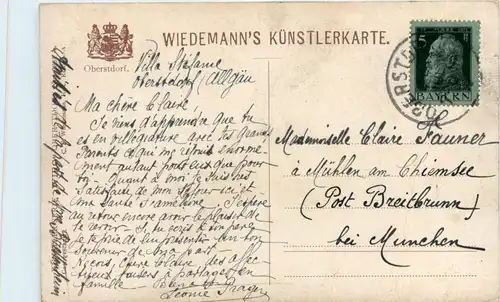 Oberstdorf.
WIEDEMANN'S KÜNSTLERKARTE.
5
BAYERN
OBERSTDORF
Villa Stéfanie
Oberstdorf /Allgäu
Ma chère Claire,
Je viens d'apprendre que tu
es en villégiature avec tes Grands
Parents ce qui me réjouis énormé-
ment autant pour eux que pour
toi. Quant à moi je suis très
satisfaite de mon séjour ici et
ma santé s'améliore. J'espère
au retour encore avoir le plaisir de
te revoir. Si tu vois
je te prie de lui présenter un bon
souvenir de ma part.
Reçois, chère Claire, des affec-
tueux baisers à partager en
famille
Léonie Prager
Mademoiselle Claire Fauner
à Mühlen am Chiemsee
(Post Breitbrunn)
bei Munchen